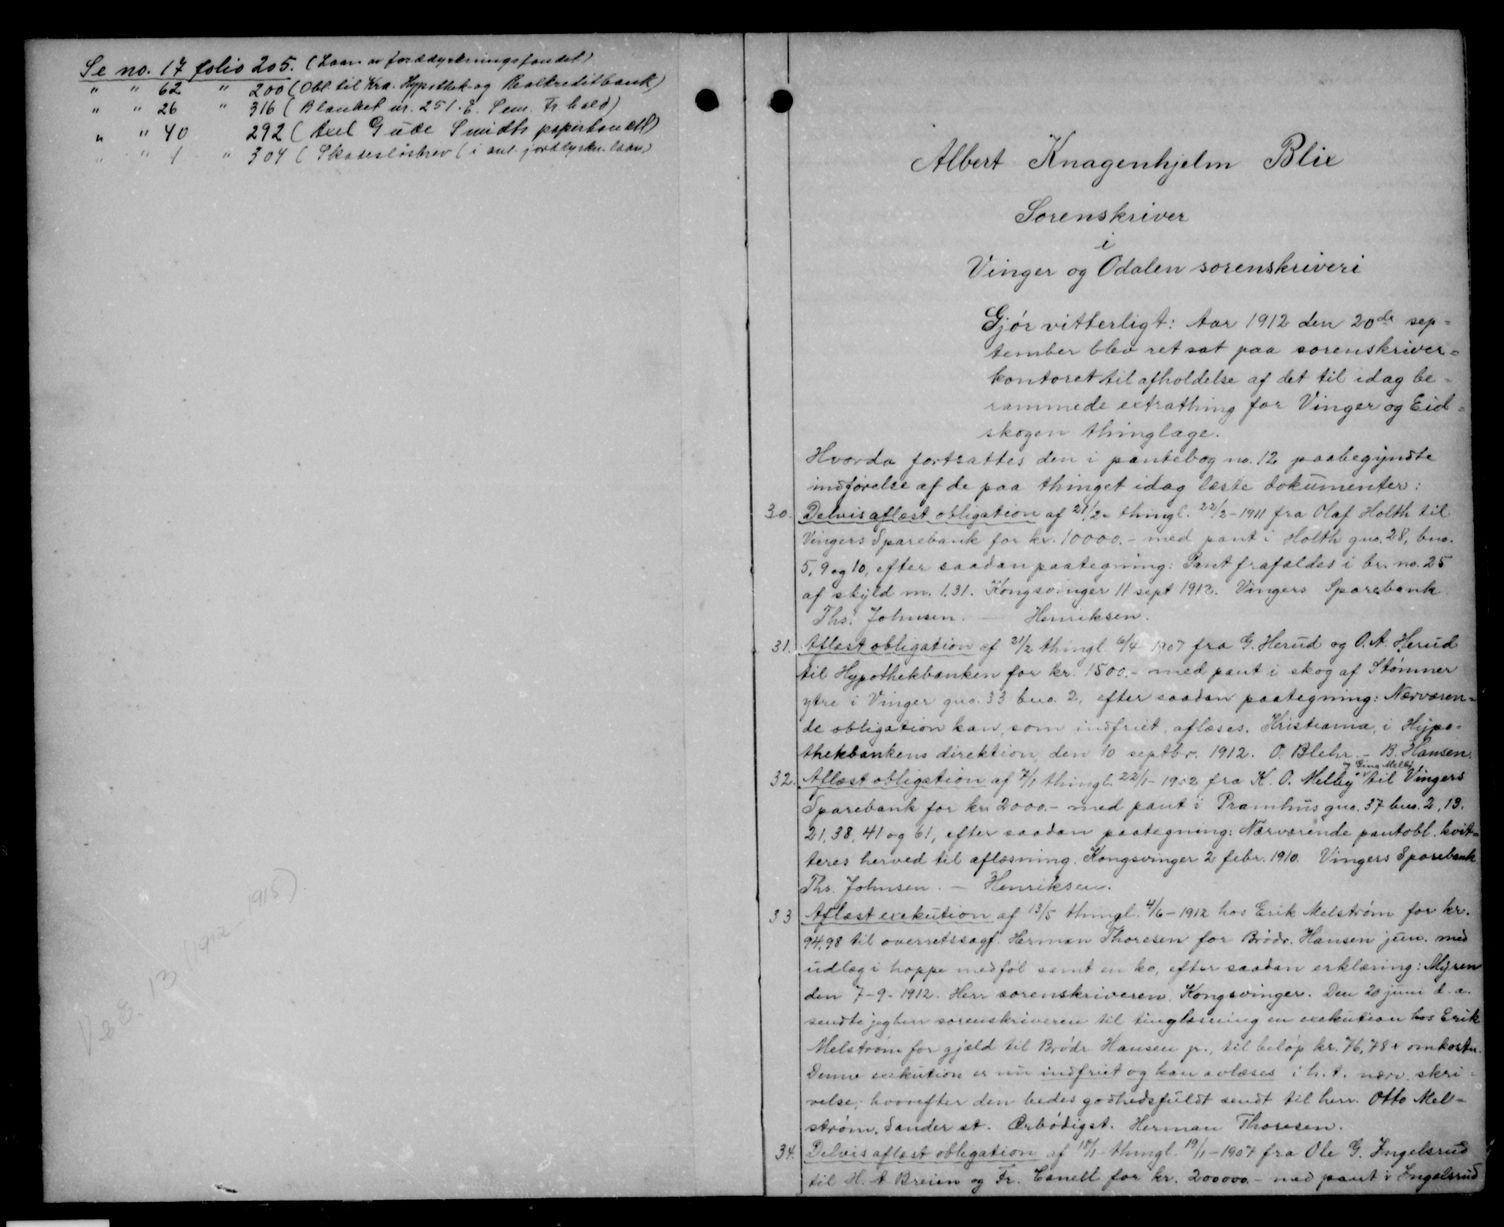 Se no. 17 folio 205. (Laan av jorddyrkningsfondet)
" " 62 " 200 (Obl. til Kra. Hypothek- og Realkreditbank)
" " 26 " 316 (Blanket nr. 251. E. Sem. Fr.hald)
" " 40 292 (Axel Gude Smidth papirhandel)
" " 1 " 304 (Skadesløsbrev (i anl. jorddyrkn. laan)
V & E. 13 (1912 1915).
Albert Knagenhjelm Blix
Sorenskriver
i
Vinger og Odalen sorenskriveri
Gjør vitterligt: Aar 1912 den 20de sep-
tember blev ret sat paa sorenskriver-
kontoret til afholdelse af det til idag be-
rammede extrathing for Vinger og Eid-
skogen thinglage.
Hvorda fortsattes den i pantebog no. 12 paabegyndte
indførelse af de paa thinget idag læste dokumenter:
30. Delvis aflæst obligation af 21/2 thingl. 22/2-1911 fra Olaf Holth til
Vingers Sparebank for kr. 10000.- med pant i Holth gno. 28, bno.
5, 9 og 10, efter saadan paategning: Pant frafaldes i br. no. 25
af skyld m. 1.31. Kongsvinger 11 sept 1912. Vingers Sparebank
Ths. Johnsen. — Henriksen.
31. Aflæst obligation af 21/2 thingl. 6/4 1907 fra G. Herud og O. A. Herud
til Hypothekbanken for kr. 1500.- med pant i skog af Stømner
ytre i Vinger gno. 33 bno. 2, efter saadan paategning: Nærværen-
de obligation kan, som indfriet, aflæses. Kristiania, i Hypo-
thekbankens direktion, den 10 septbr. 1912. O. Blehr. - B. Hansen.
32. Aflæst obligation af 7/1 thingl. 22/1-1902 fra K. O. Melby og Gina Melby til Vingers
Sparebank for kr. 2000.- med pant i Pramhus gno. 37 bno. 2, 13.
21, 38, 41 og 61, efter saadan paategning: Nærværende pantobl. kvit-
teres herved til aflæsning. Kongsvinger 2 febr. 1910. Vingers Sparebank
Ths. Johnsen. — Henriksen.
33 Aflæst exekution af 13/5 thingl. 4/6-1912 hos Erik Melstrøm for kr.
94.98 til overretssagf. Herman Thoresen for Brødr. Hansen jun. med
udlæg i hoppe med føl samt en ko, efter saadan erklæring: Myren
den 7-9-1912. Herr sorenskriveren, Kongsvinger. Den 20 juni d. a.
sendte jeg herr sorenskriveren til tinglæsning en exekution hos Erik
Melstrøm for gjæld til Brødr. Hansen jr., til beløp kr. 76,78 + omkostn.
Denne exekution er nu indfriet og kan avlæses i h. t. nærv. skri-
velse, hvorefter den bedes godhedsfuldt sendt til herr. Otto Mel-
strøm, Sander st. Ærbødigst. Herman Thoresen.
34. Delvis aflæst obligation af 18/1 thingl. 19/1-1907 fra Ole G. Ingelsrud
til H. A. Breien og Fr. for kr. 200000.- med pant i Ingelsrud